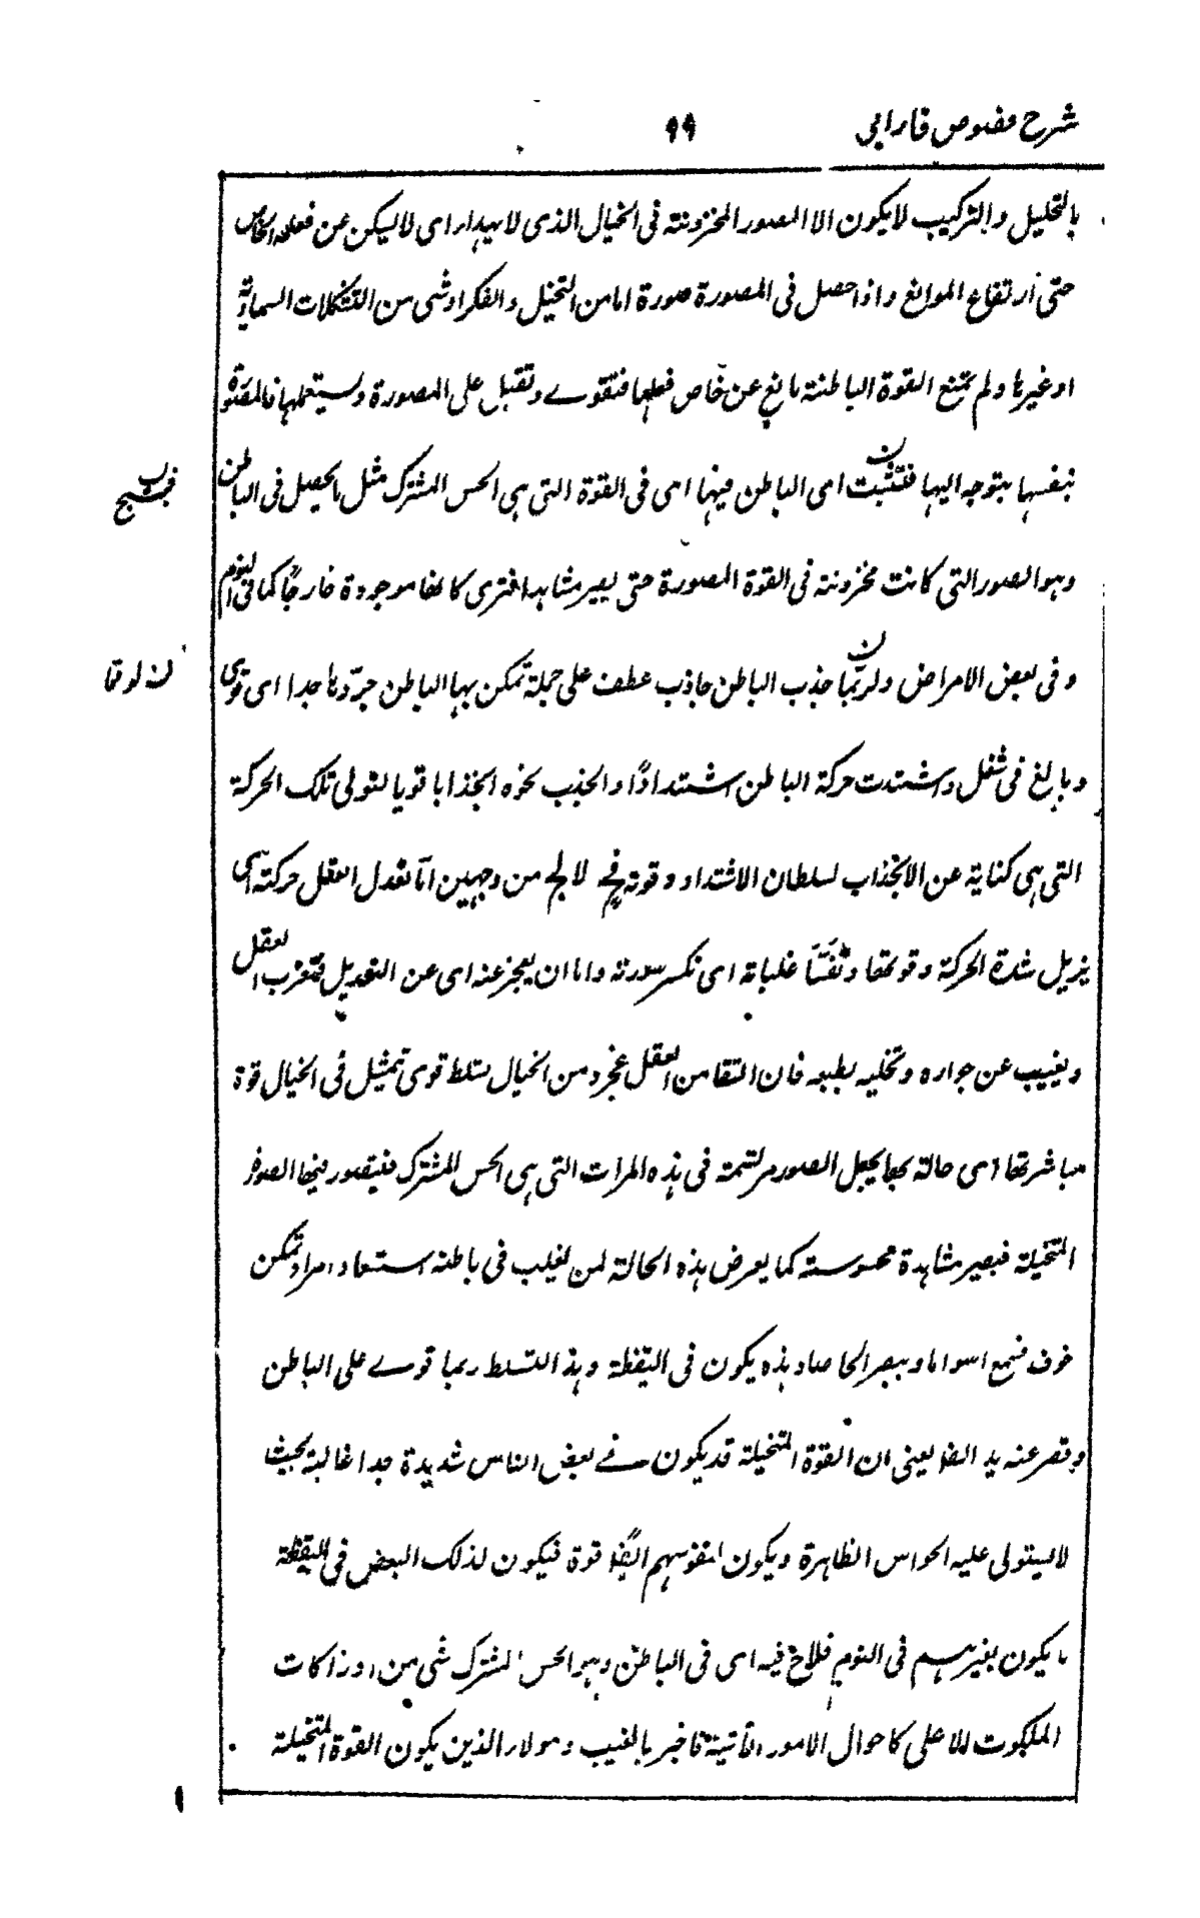 شرح فصوص فارابی ۹۹
بالتحلیل والترکیب لا یکون الا المصور المخزونة فی الخیال الذی لا یهدار ای لا لیکن عن فعله الخاص
حتی ارتفاع الموانع واذا حصل فی المصورة صورة اما من التخیل والفکر او شی من التشکلات السماویة
او غیرها ولم یمنع القوة الباطنة مانع عن خاص فعلها فتقوے وتقبل علی المصورة ولیستعملها
بنفسها یتوجه الیها فتتثبت ای الباطن فیها ای فی القوة التی هی الحس المشترک مثل ما یحصل فی الباطن
وهو الصور التی کانت مخزونة فی القوة المصورة حتی یصیر مشاهدا فتری کانها موجودة خارجًا کما فی النوم
وفی بعض الامراض ولربّما جذب الباطن جاذب عطف علی جملة تمکن بها الباطن جدا ای قوی
وبالغ فی شغل واشتدت حرکة الباطن اشتدادًا وانجذب نحوه انجذابا قویا لتولی تلک الحرکة
التی هی کنایة عن الانجذاب لسلطان الاشتداد وقوته فح لا یخ من وجهین امّا تعدل العقل حرکته ای
یزیل شدة الحرکة وقوتها غلبانه ای تکسر سورته واما ان یعجز عنه ای عن التعدیل فتعزب العقل
ویغیب عن جواره وتخلیه بطبعه فان اتفق من العقل عجز ومن الخیال تسلط قوی تمثیل فی الخیال قوة
مباشرتها ای حالة بها یجعل الصور مرتسمة فی هذه المرات التی هی الحس المشترک فیتصور فیها الصور
المتخیلة فیصیر مشاهدة محسوسة کما یعرض هذه الحالة لمن یغلب فی باطنه استعاد امر او تمکن
خوف فیسمع اسواتا ویبصر اشخاصا وهذه یکون فی الیقظة وهذا التسلط ربما قوے علی الباطن
وقصر عنه ید الظا یعنی ان القوة المتخیلة قد یکون فے بعض الناس شدیدة جدا غالبة بحیث
لا یستولی علیه الحواس الظاهرة ویکون لنفوسهم ایضًا قوة فیکون لذلک البعض فی الیقظة
ما یکون لغیرهم فی النوم فلاح فیه ای فی الباطن وهو الحس المشترک شی من
الملکوت الاعلی کاحوال الامور الآتیة فاخبر بالغیب وهولاء الذین یکون القوة المتخیلة